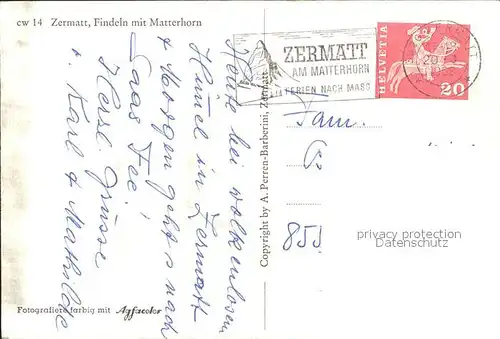 cw 14 Zermatt, Findeln mit Matterhorn
Heute bei wolkenlosem
Himel in Zermatt
+ Morgen geht's nach
Saas Fee!
Herzl Grüsse
v. Karl + Mathilde
Fotografiere farbig mit Agfacolor
Copyright by A. Perren-Barberini, Zermatt
ZERMATT
AM MATTERHORN
FERIEN NACH MASS
HELVETIA
20
20
Fam.
855
privacy protection
Datenschutz